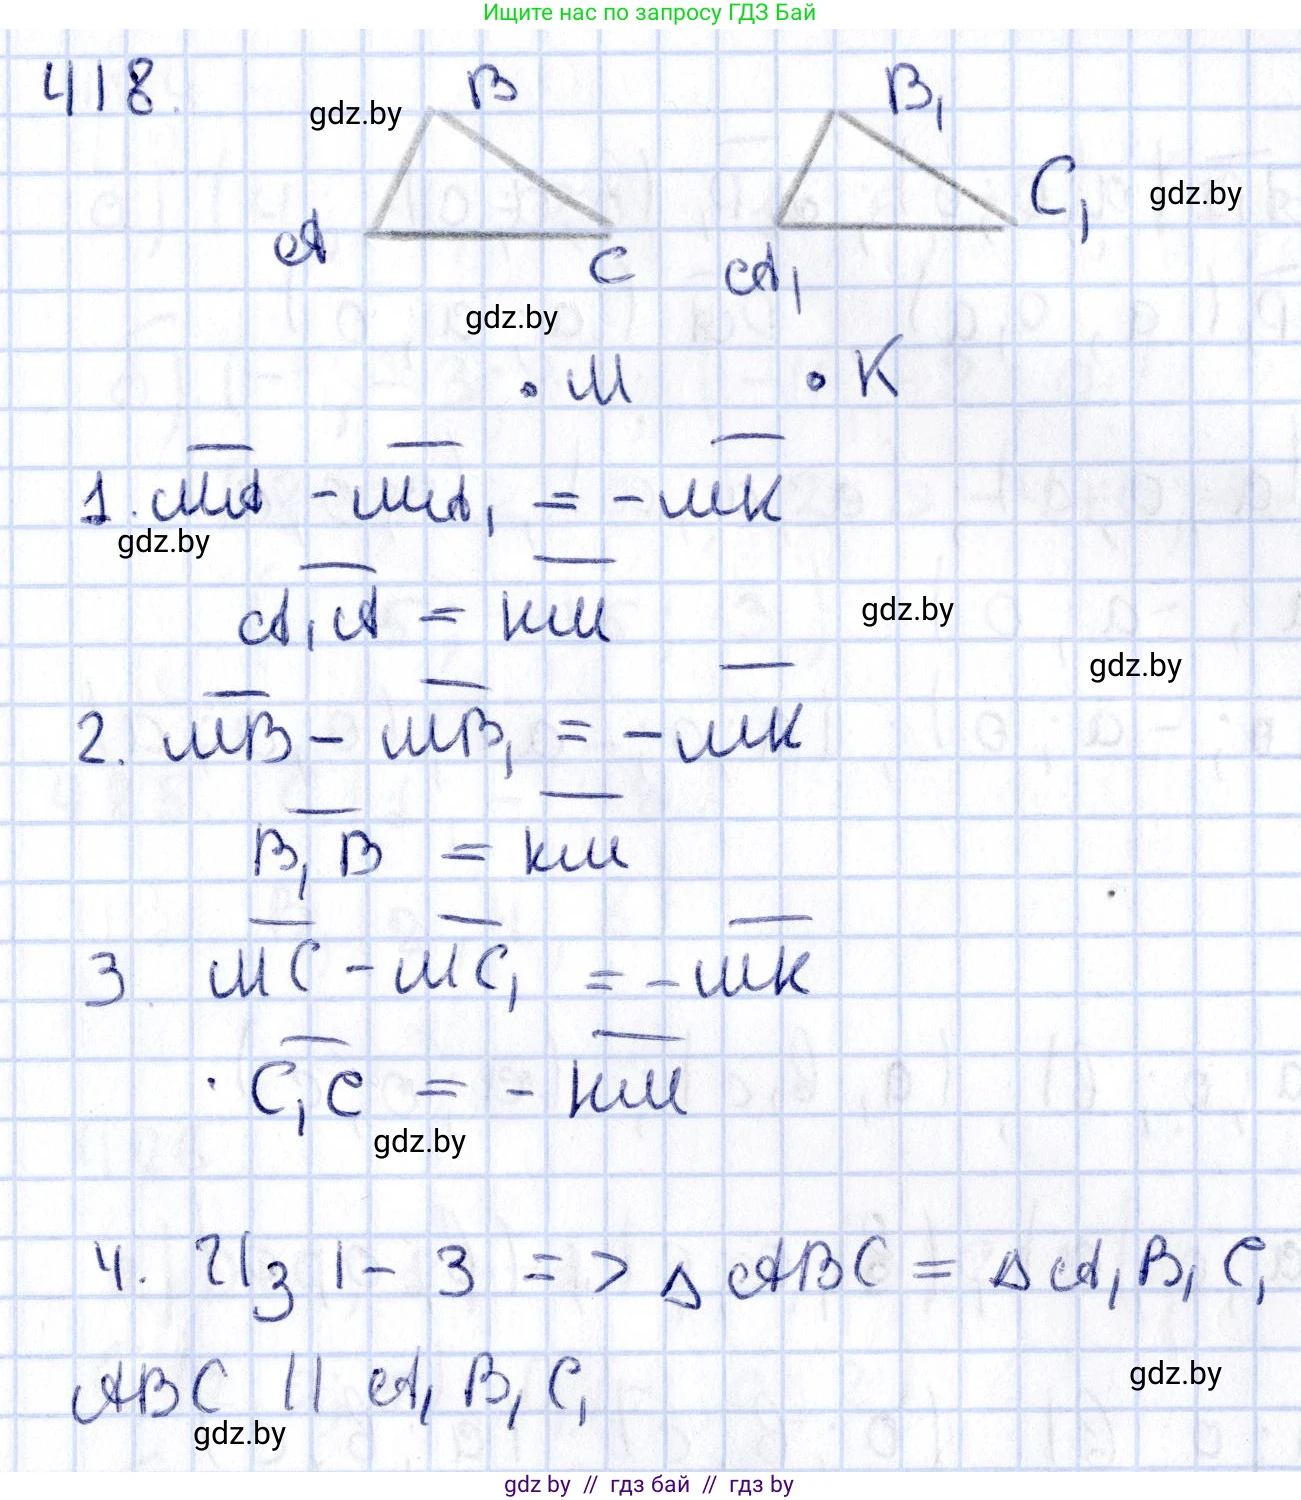 Ищите нас по запросу ГДЗ Бай
418.
B
B₁
gdz.by
C₁
gdz.by
A
C
A₁
gdz.by
. M
. K
1. M̅A̅ - M̅A̅₁ = - M̅K̅
gdz.by
A̅₁A̅ = K̅M̅
gdz.by
gdz.by
2. M̅B̅ - M̅B̅₁ = - M̅K̅
B̅₁B̅ = K̅M̅
3. M̅C̅ - M̅C̅₁ = - M̅K̅
C̅₁C̅ = - K̅M̅
gdz.by
4. Из 1 - 3 => Δ ABC = Δ A₁B₁C₁
ABC || A₁B₁C₁
gdz.by
gdz.by
gdz by // гдз бай // гдз by